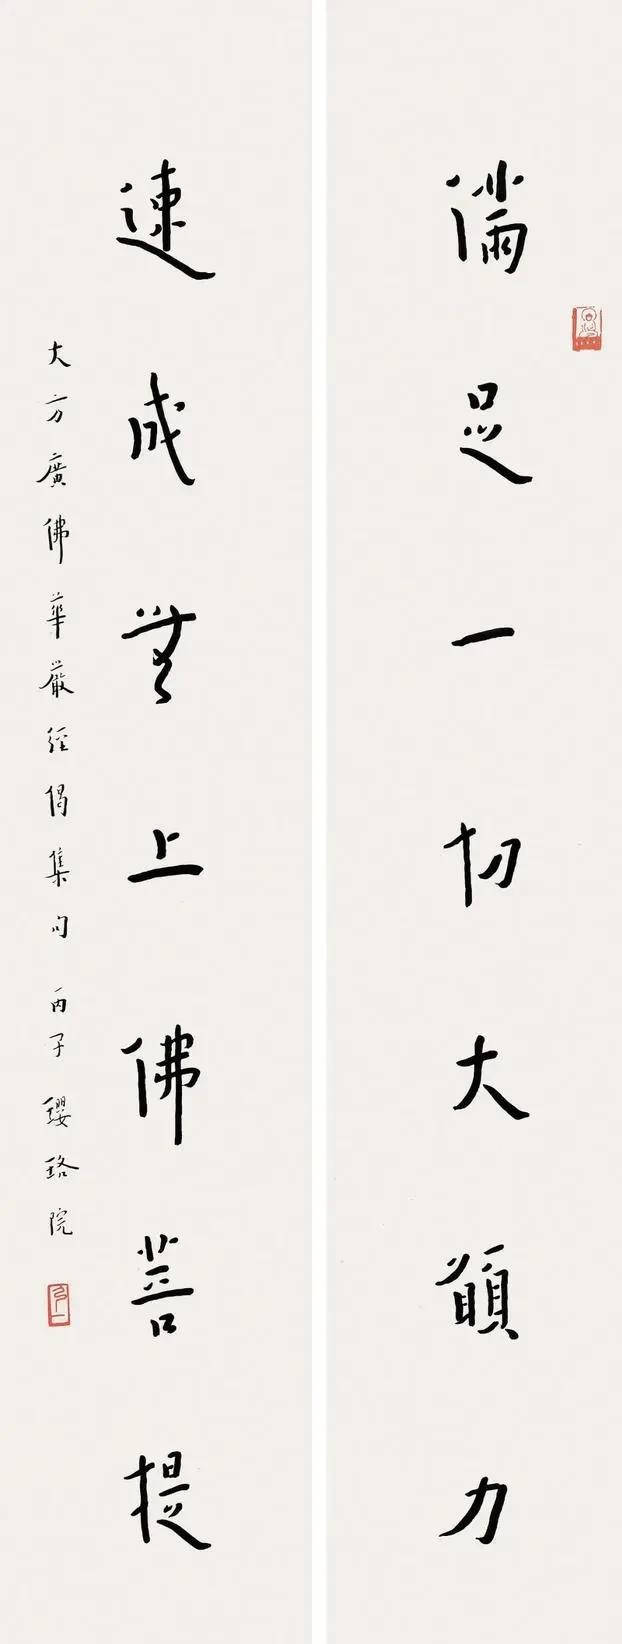 滿足一切大願力
速成無上佛菩提
大方廣佛華嚴經偈集句 丙子 纓珞院